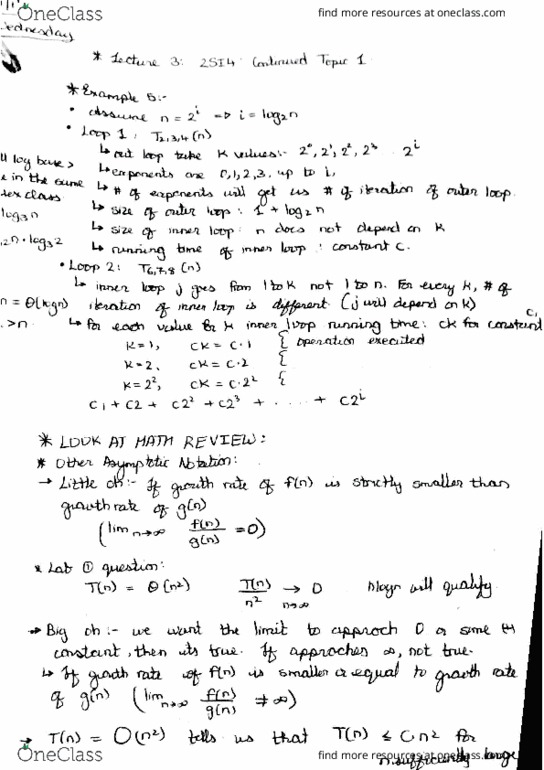 OneClass
find more resources at oneclass.com
Wednesday
* Lecture 3: 2SI4 Continued Topic 1
* Example 5:-
• Assume n = 2^i => i = log₂n
• Loop 1: T₂,₃,₄(n)
↳ out loop take K values:- 2⁰, 2¹, 2², 2³ 2^i
↳ exponents are 0,1,2,3, up to i,
↳ # of exponents will get us # of iteration of outer loop.
↳ size of outer loop: 1 + log₂n
↳ size of inner loop: n does not depend on K
↳ running time of inner loop: constant c.
ll log bases
e in the same
log₃n
₂n·log₃2
• Loop 2: T₆,₇,₈(n)
↳ inner loop j goes from 1 to K not 1 to n. For every K, # of
iteration of inner loop is different (j will depend on K)
n = Θ(logn)
.>n
↳ for each value for K inner loop running time: CK for constant
C,
K=1, CK = C·1 { operation executed
K=2, CK = C·2 {
K=2², CK = C·2² {
C1 + C2 + C2² + C2³ + ..... + C2^i
* LOOK AT MATH REVIEW:
* Other Asymptotic Notation:
→ Little oh:- If growth rate of f(n) is strictly smaller than
growth rate of g(n)
(lim n→∞ f(n)/g(n) = 0)
* Lab ① question:
T(n) = Θ(n²) T(n)/n² → 0 n→∞ will qualify
→ Big oh:- we want the limit to approch 0 or some
constant, then its true. If approaches ∞, not true.
↳ If growth rate of f(n) is smaller or equal to growth rate
of g(n) (lim n→∞ f(n)/g(n) ≠ ∞)
→ T(n) = O(n²) tells us that T(n) ≤ C·n² for
n sufficiently large
OneClass
find more resources at oneclass.com